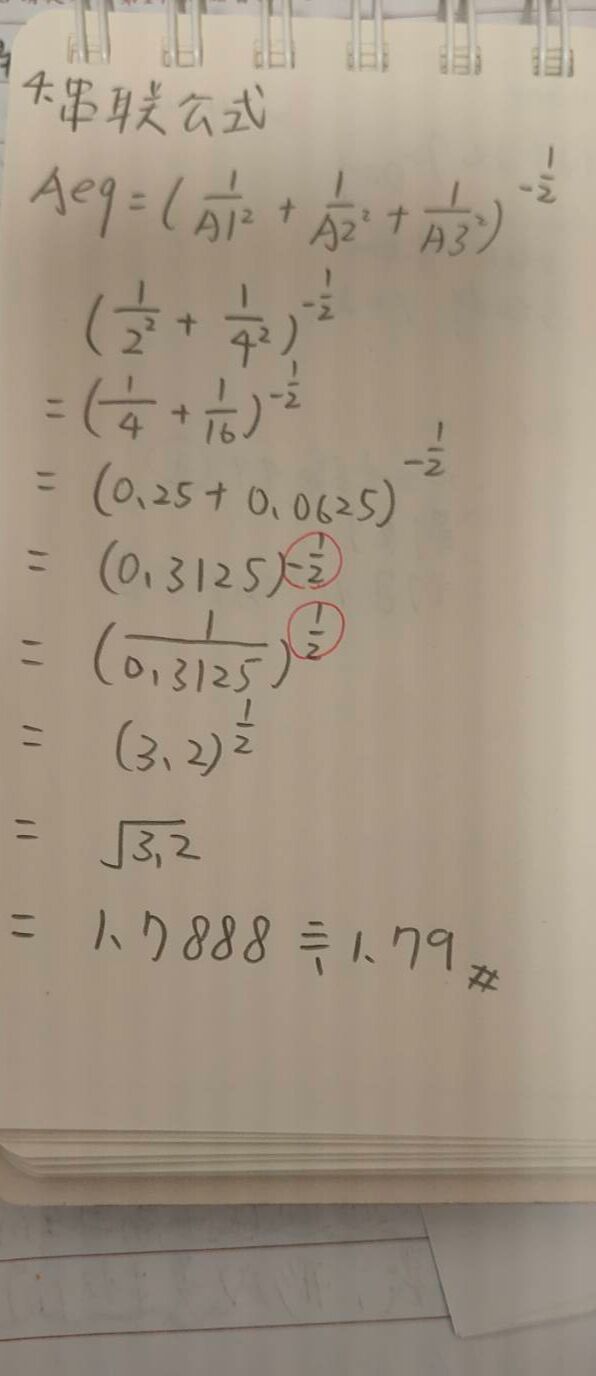 4.串联公式
Aeq = (1/A1² + 1/A2² + 1/A3²)^-1/2
(1/2² + 1/4²)^-1/2
= (1/4 + 1/16)^-1/2
= (0.25 + 0.0625)^-1/2
= (0.3125)^-1/2
= (1/0.3125)^1/2
= (3.2)^1/2
= √3.2
= 1.7888 ≒ 1.79 #